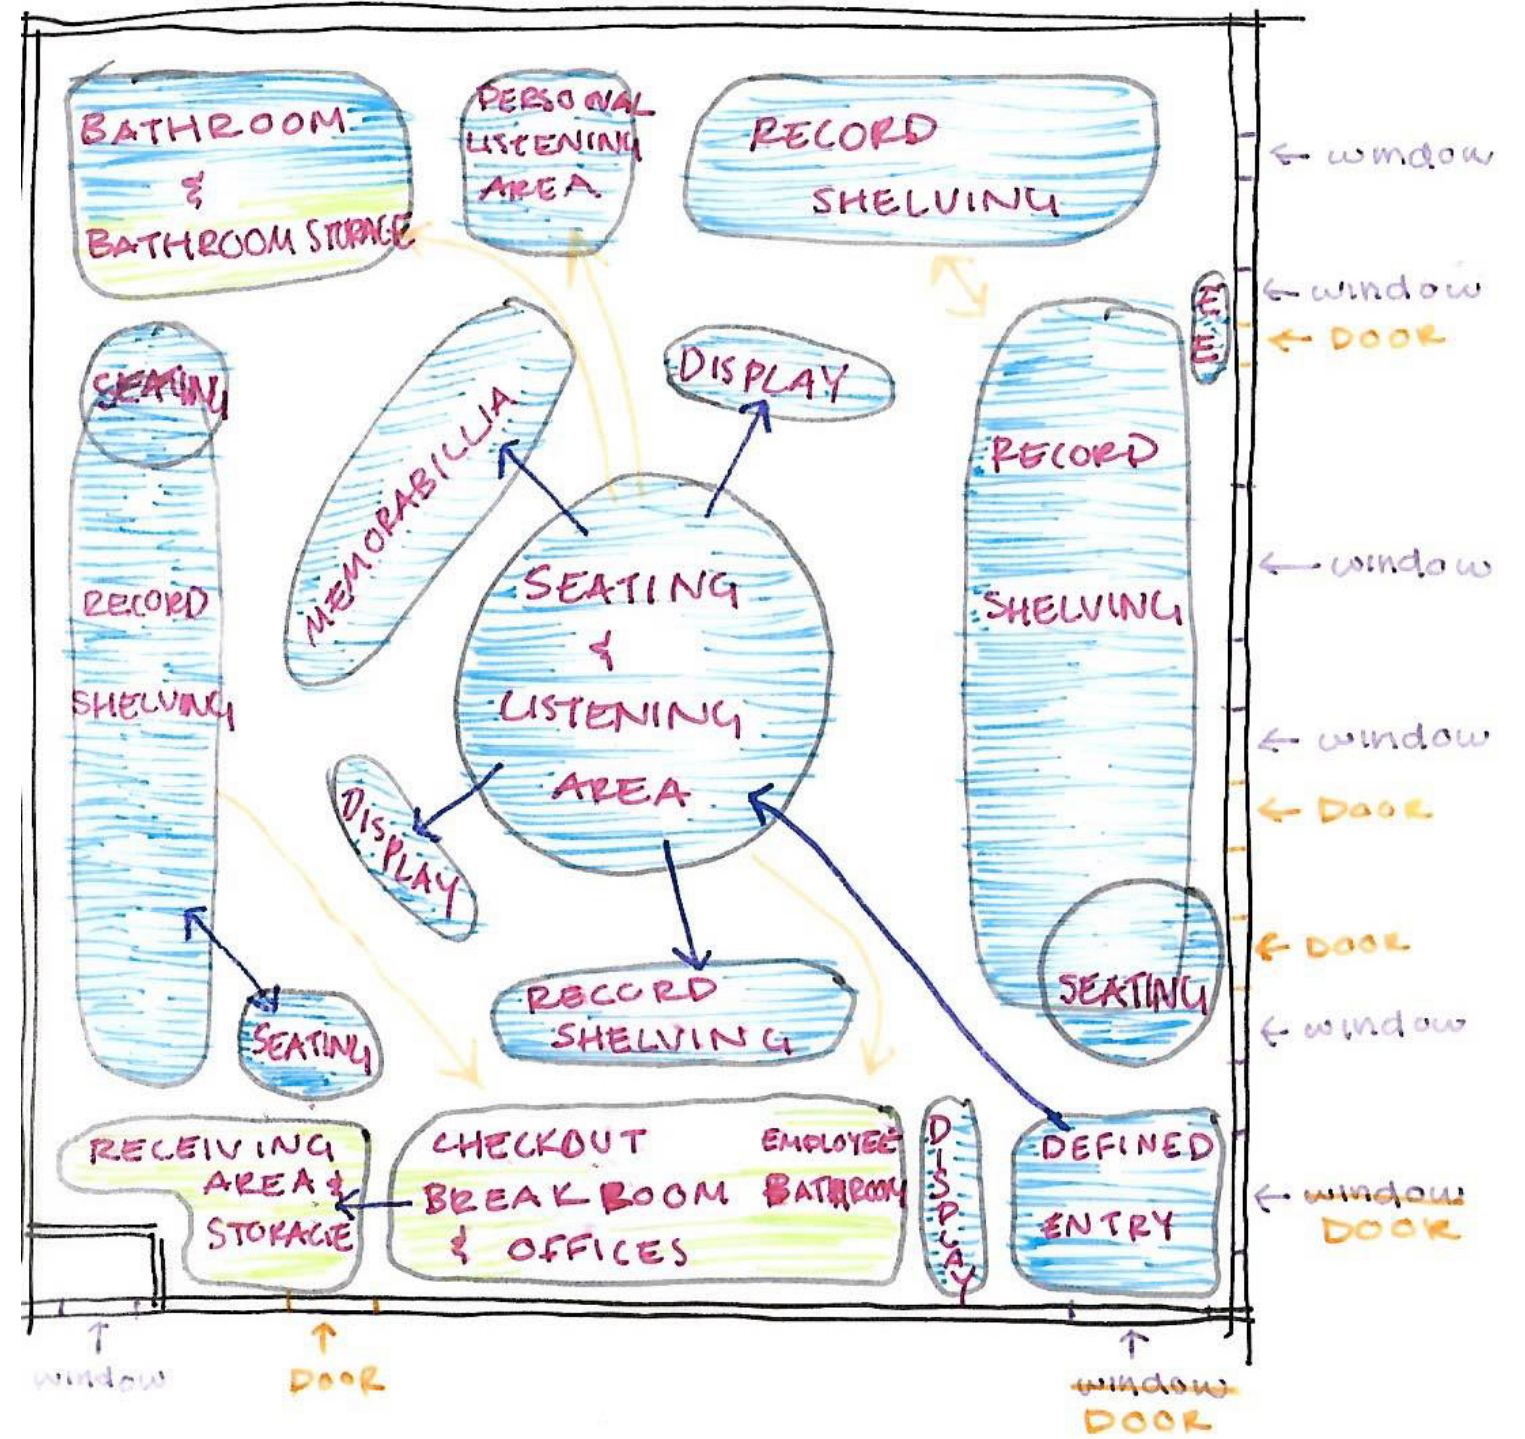 BATHROOM
&
BATHROOM STORAGE
PERSONAL
LISTENING
AREA
RECORD
SHELVING
← window
← window
← DOOR
E
E
SEATING
MEMORABILLIA
DISPLAY
RECORD
SHELVING
← window
SEATING
&
LISTENING
AREA
RECORD
SHELVING
← window
← DOOR
DISPLAY
← DOOR
SEATING
← window
SEATING
RECORD
SHELVING
RECEIVING
AREA &
STORAGE
CHECKOUT
BREAK ROOM
& OFFICES
EMPLOYEE
BATHROOM
DISPLAY
DEFINED
ENTRY
← window
DOOR
↑
window
↑
DOOR
↑
window
DOOR